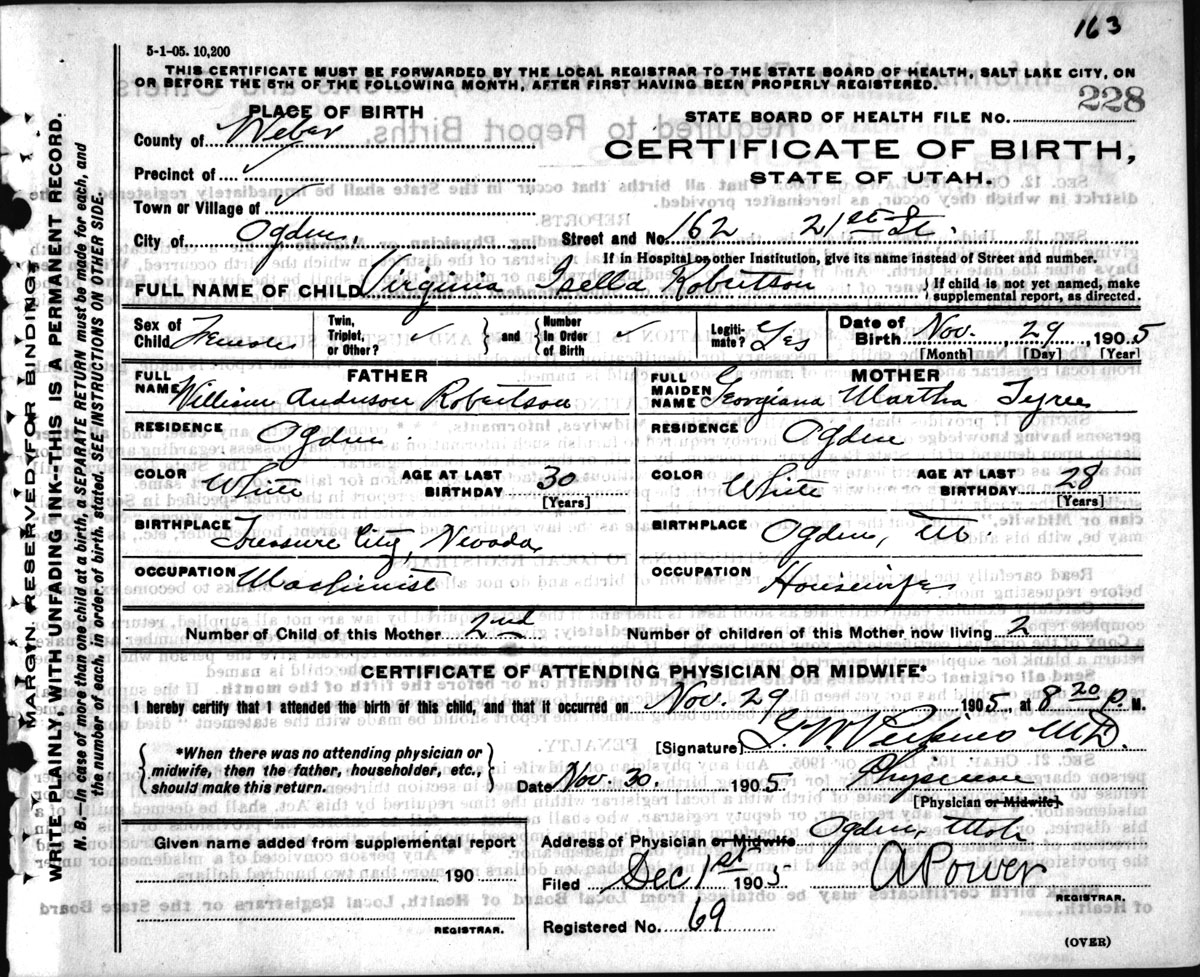 163
5-1-05. 10,200
THIS CERTIFICATE MUST BE FORWARDED BY THE LOCAL REGISTRAR TO THE STATE BOARD OF HEALTH, SALT LAKE CITY, ON
OR BEFORE THE 5TH OF THE FOLLOWING MONTH, AFTER FIRST HAVING BEEN PROPERLY REGISTERED.
228
PLACE OF BIRTH
STATE BOARD OF HEALTH FILE NO.
County of Weber
CERTIFICATE OF BIRTH,
Precinct of ✓
STATE OF UTAH.
Town or Village of ✓
City of Ogden. Street and No. 162 21st St.
If in Hospital or other Institution, give its name instead of Street and number.
FULL NAME OF CHILD Virginia Isella Robertson { If child is not yet named, make supplemental report, as directed.
Sex of Child Female Twin, Triplet, or Other? ✓ } and { Number in Order of Birth ✓ Legitimate? Yes Date of Birth Nov. 29 1905
[Month] [Day] [Year]
FATHER MOTHER
FULL NAME William Anderson Robertson FULL MAIDEN NAME Georgiana Martha Tyree
RESIDENCE Ogden. RESIDENCE Ogden
COLOR White AGE AT LAST BIRTHDAY 30 [Years] COLOR White AGE AT LAST BIRTHDAY 28 [Years]
BIRTHPLACE Tressure City, Nevada BIRTHPLACE Ogden, Ut.
OCCUPATION Machinist OCCUPATION Housewife
Number of Child of this Mother 2nd Number of children of this Mother now living 2
CERTIFICATE OF ATTENDING PHYSICIAN OR MIDWIFE*
I hereby certify that I attended the birth of this child, and that it occurred on Nov. 29 1905, at 8 20 P. M.
{ *When there was no attending physician or midwife, then the father, householder, etc., should make this return. }
[Signature] M.D.
Date Nov. 30. 1905 Physician
[Physician or Midwife]
Given name added from supplemental report
Address of Physician or Midwife Ogden, Utah
190
Filed Dec 1st 1905 A Power
REGISTRAR.
REGISTRAR.
Registered No. 69
(OVER)
MARGIN RESERVED FOR BINDING.
WRITE PLAINLY WITH UNFADING INK—THIS IS A PERMANENT RECORD.
N. B.—In case of more than one child at a birth, a SEPARATE RETURN must be made for each, and
the number of each, in order of birth, stated. SEE INSTRUCTIONS ON OTHER SIDE.